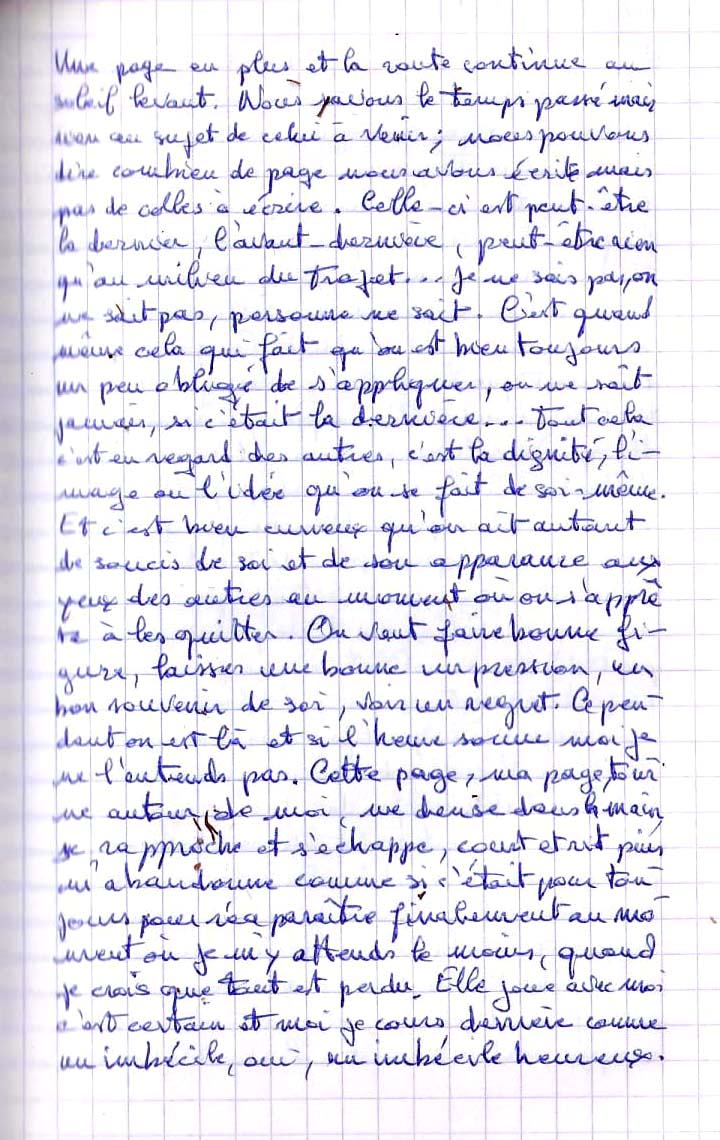 Une page en plus et la route continue au
soleil levant. Nous savons le temps passé mais
rien au sujet de celui à venir; nous pouvons
dire combien de page nous avons écrite mais
pas de celles à écrire. Celle-ci est peut-être
la dernier, l'avant-dernière, peut-être rien
qu'au milieu du trajet... Je ne sais pas, on
ne sait pas, personne ne sait. C'est quand
même cela qui fait qu'on est bien toujours
un peu obligé de s'appliquer, on ne sait
jamais, si c'était la dernière... Tout cela
c'est en regard des autres, c'est la dignité, l'i-
mage ou l'idée qu'on se fait de soi-même.
Et c'est bien curieux qu'on ait autant
de soucis de soi et de son apparance aux
yeux des autres au moment où on s'apprê
te à les quitter. On veut faire bonne fi-
gure, laisser une bonne impression, un
bon souvenir de soi, voir un regret. Cepen-
dant on est là et si l'heure sonne moi je
ne l'entends pas. Cette page, ma page, tour
ne autour de moi, me danse dans la main,
se rapproche et s'échappe, court et rit puis
m'abandonne comme si c'était pour tou-
jours pour réaparaître finalement au mo-
ment où je m'y attends le moins, quand
je crois que tout est perdu. Elle joue avec moi
c'est certain et moi je cours derrière comme
un imbécile, oui, un imbécile heureux.